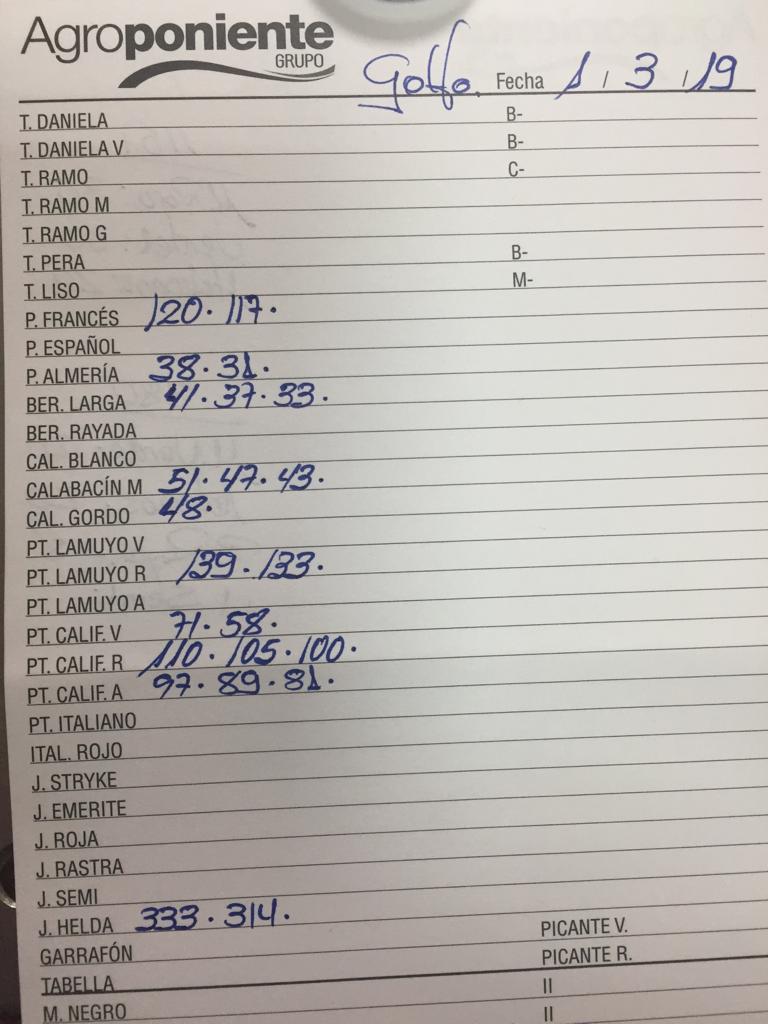 Agroponiente
GRUPO
Golfo. Fecha 1 / 3 / 19
T. DANIELA B-
T. DANIELA V B-
T. RAMO C-
T. RAMO M
T. RAMO G
T. PERA B-
T. LISO M-
P. FRANCÉS 120. 117.
P. ESPAÑOL
P. ALMERÍA 38. 31.
BER. LARGA 41. 37. 33.
BER. RAYADA
CAL. BLANCO
CALABACÍN M 51. 47. 43.
CAL. GORDO 48.
PT. LAMUYO V
PT. LAMUYO R 139. 133.
PT. LAMUYO A
PT. CALIF. V 71. 58.
PT. CALIF. R 110. 105. 100.
PT. CALIF. A 97. 89. 81.
PT. ITALIANO
ITAL. ROJO
J. STRYKE
J. EMERITE
J. ROJA
J. RASTRA
J. SEMI
J. HELDA 333. 314.
GARRAFÓN PICANTE V.
TABELLA PICANTE R.
M. NEGRO II
II